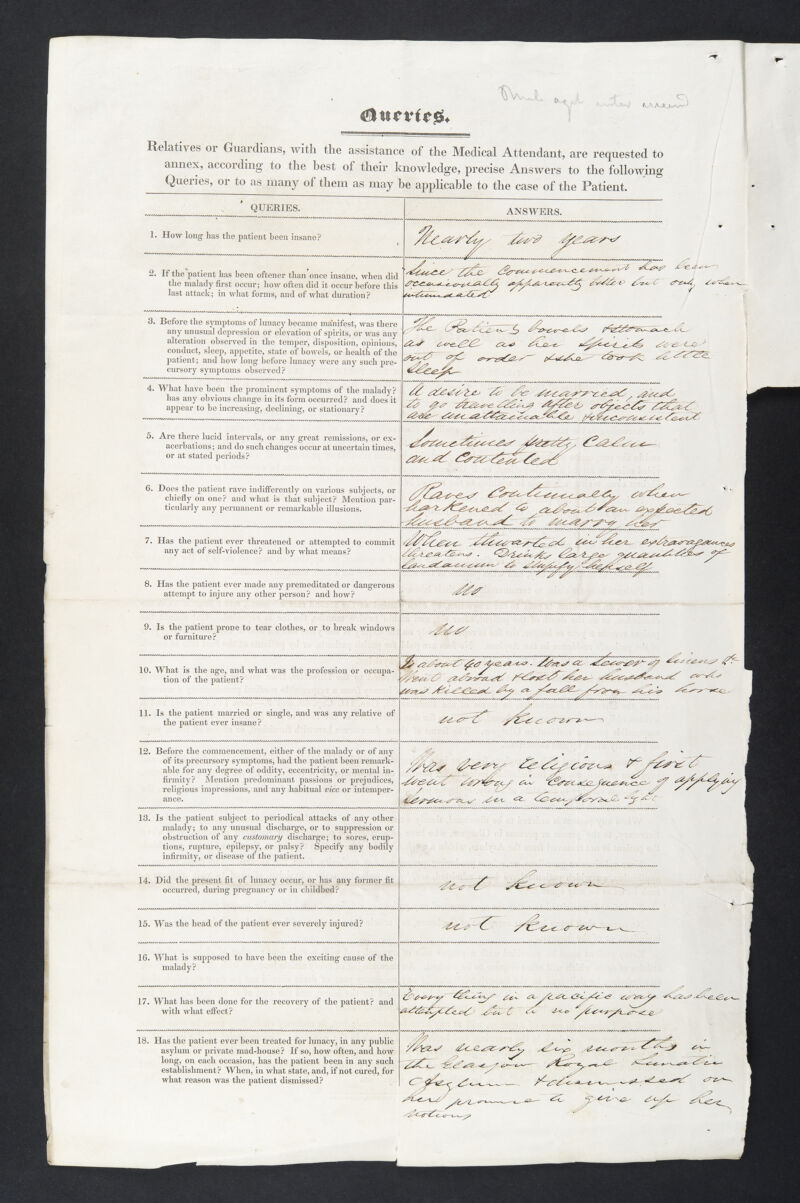 Queries.
Relatives or Guardians, with the assistance of the Medical Attendant, are requested to
annex, according to the best of their knowledge, precise Answers to the following
Queries, or to as many of them as may be applicable to the case of the Patient.
QUERIES.
ANSWERS.
1. How long has the patient been insane?
Nearly two years
2. If the patient has been oftener than once insane, when did
the malady first occur; how often did it occur before this
last attack; in what forms, and of what duration?
Since the commencement has been
occasionally apparently better but only when
intimidated
3. Before the symptoms of lunacy became manifest, was there
any unusual depression or elevation of spirits, or was any
alteration observed in the temper, disposition, opinions,
conduct, sleep, appetite, state of bowels, or health of the
patient; and how long before lunacy were any such pre-
cursory symptoms observed?
The Patients bowels & stomach
as well as her spirits were
out of order & she took little
sleep
4. What have been the prominent symptoms of the malady?
has any obvious change in its form occurred? and does it
appear to be increasing, declining, or stationary?
A desire to be married, and
to go travelling after objects that
are unattainable & inconsistent
5. Are there lucid intervals, or any great remissions, or ex-
acerbations; and do such changes occur at uncertain times,
or at stated periods?
Sometimes pretty Calm
and Contented
6. Does the patient rave indifferently on various subjects, or
chiefly on one? and what is that subject? Mention par-
ticularly any permanent or remarkable illusions.
Raves Continually when
harkened to about an expected
husband to marry her
7. Has the patient ever threatened or attempted to commit
any act of self-violence? and by what means?
When thwarted in her extravagances
threatens. Drinks large quantities of
laudanum to stupify herself
8. Has the patient ever made any premeditated or dangerous
attempt to injure any other person? and how?
no
9. Is the patient prone to tear clothes, or to break windows
or furniture?
no
10. What is the age, and what was the profession or occupa-
tion of the patient?
Is about 40 years. Was a sewer of linens &c
Went abroad & lost her husband who
was killed by a fall from his horse
11. Is the patient married or single, and was any relative of
the patient ever insane?
not known
12. Before the commencement, either of the malady or of any
of its precursory symptoms, had the patient been remark-
able for any degree of oddity, eccentricity, or mental in-
firmity? Mention predominant passions or prejudices,
religious impressions, and any habitual vice or intemper-
ance.
Was very religious & first
went wrong in consequence of applying
sermons in a temporal light
13. Is the patient subject to periodical attacks of any other
malady; to any unusual discharge, or to suppression or
obstruction of any customary discharge; to sores, erup-
tions, rupture, epilepsy, or palsy? Specify any bodily
infirmity, or disease of the patient.
14. Did the present fit of lunacy occur, or has any former fit
occurred, during pregnancy or in childbed?
not known
15. Was the head of the patient ever severely injured?
not known
16. What is supposed to have been the exciting cause of the
malady?
17. What has been done for the recovery of the patient? and
with what effect?
Every thing in a pacific way has been
attempted but to no purpose
18. Has the patient ever been treated for lunacy, in any public
asylum or private mad-house? If so, how often, and how
long, on each occasion, has the patient been in any such
establishment? When, in what state, and, if not cured, for
what reason was the patient dismissed?
Was nearly six months in
the Glasgow Royal Lunatic
Asylum & dismissed on
her promise to give up her
notions